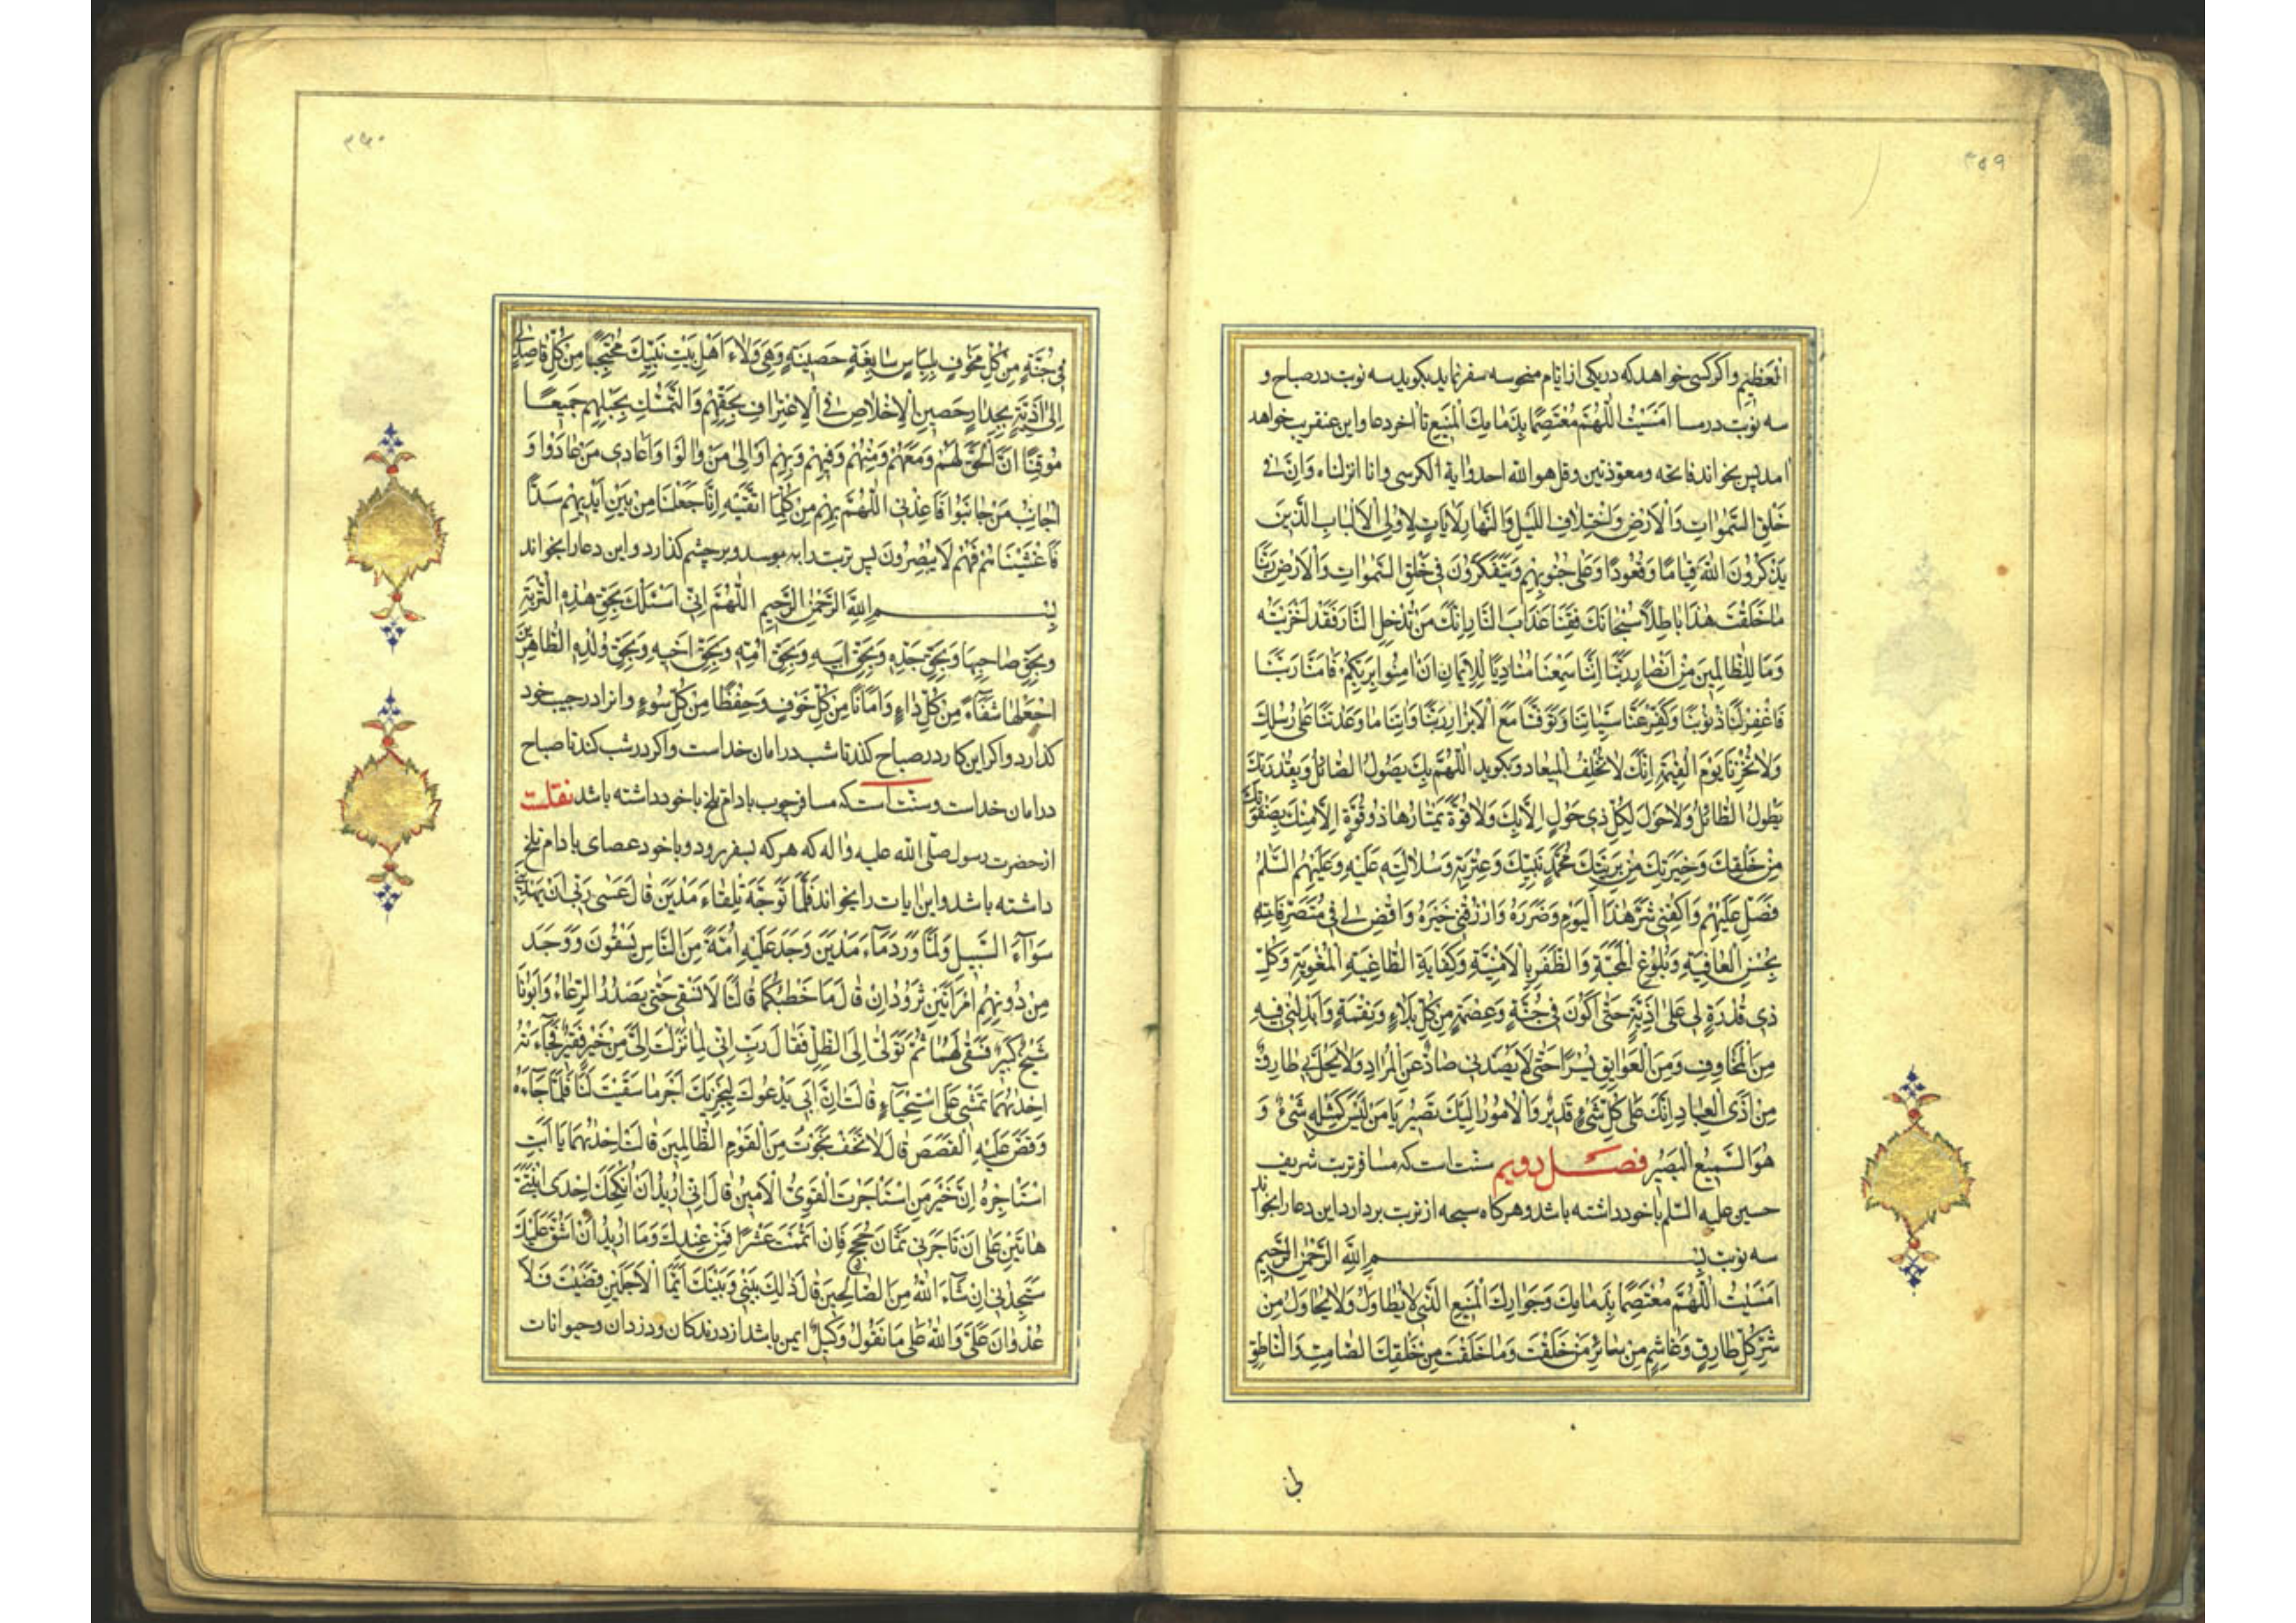 ۳۵۹
العَظِیمِ واکر کسی خواهد که در یکی از ایام منحوسه سفر نماید بکوید سه نوبت در صباح و
سه نوبت در مسا اَمْسَیْتُ اللّٰهُمَّ مُعْتَصِمًا بِذِمَامِكَ المَنِیعِ تا اخر دعا و این عنقریب خواهد
امد پس بخواند فاتحه و معوّذتین و قل هو الله احد و ایة الکرسی و انا انزلناه وَاِنَّ فی
خَلْقِ السَّمٰوَاتِ وَالْاَرْضِ وَاخْتِلَافِ اللَّیْلِ وَالنَّهَارِ لَاٰیَاتٍ لِاُولِی الْاَلْبَابِ الَّذِینَ
یَذْكُرُونَ اللّٰهَ قِیَامًا وَقُعُودًا وَعَلٰی جُنُوبِهِمْ وَیَتَفَكَّرُونَ فِی خَلْقِ السَّمٰوَاتِ وَالْاَرْضِ رَبَّنَا
مَا خَلَقْتَ هٰذَا بَاطِلًا سُبْحَانَكَ فَقِنَا عَذَابَ النَّارِ رَبَّنَا اِنَّكَ مَنْ تُدْخِلِ النَّارَ فَقَدْ اَخْزَیْتَهُ
وَمَا لِلظَّالِمِینَ مِنْ اَنْصَارٍ رَبَّنَا اِنَّنَا سَمِعْنَا مُنَادِیًا یُنَادِی لِلْاِیمَانِ اَنْ اٰمِنُوا بِرَبِّكُمْ فَاٰمَنَّا رَبَّنَا
فَاغْفِرْ لَنَا ذُنُوبَنَا وَكَفِّرْ عَنَّا سَیِّئَاتِنَا وَتَوَفَّنَا مَعَ الْاَبْرَارِ رَبَّنَا وَاٰتِنَا مَا وَعَدْتَنَا عَلٰی رُسُلِكَ
وَلَا تُخْزِنَا یَوْمَ الْقِیٰمَةِ اِنَّكَ لَا تُخْلِفُ الْمِیعَادَ و بکوید اَللّٰهُمَّ بِكَ یَصُولُ الصَّائِلُ وَبِقُدْرَتِكَ
یَطُولُ الطَّائِلُ وَلَا حَوْلَ لِكُلِّ ذِی حَوْلٍ اِلَّا بِكَ وَلَا قُوَّةَ یَمْتَارُهَا ذُو قُوَّةٍ اِلَّا مِنْكَ بِصَفْوَتِكَ
مِنْ خَلْقِكَ وَخِیَرَتِكَ مِنْ بَرِیَّتِكَ مُحَمَّدٍ نَبِیِّكَ وَعِتْرَتِهِ وَسُلَالَتِهِ عَلَیْهِ وَعَلَیْهِمُ السَّلٰمُ
فَصَلِّ عَلَیْهِمْ وَاكْفِنِی شَرَّ هٰذَا الْیَوْمِ وَضَرَرَهُ وَارْزُقْنِی خَیْرَهُ وَاقْضِ لِی فِی مُتَصَرَّفَاتِهِ
بِحُسْنِ الْعَافِیَةِ وَبُلُوغِ الْمَحَبَّةِ وَالظَّفَرِ بِالْاُمْنِیَّةِ وَكِفَایَةِ الطَّاغِیَةِ الْمُغْوِیَةِ وَكُلِّ
ذِی قُدْرَةٍ لِی عَلٰی اَذِیَّةٍ حَتّٰی اَكُونَ فِی جُنَّةٍ وَعِصْمَةٍ مِنْ كُلِّ بَلَاءٍ وَنِقْمَةٍ وَاَبْدِلْنِی فِیهِ
مِنَ الْمَخَاوِفِ وَمِنَ الْعَوَایِقِ یُسْرًا حَتّٰی لَا یَصُدَّنِی صَادٌّ عَنِ الْمُرَادِ وَلَا یَحُلَّ بِی طَارِقٌ
مِنْ اَذَی الْعِبَادِ اِنَّكَ عَلٰی كُلِّ شَیْءٍ قَدِیرٌ وَالْاُمُورُ اِلَیْكَ تَصِیرُ یَا مَنْ لَیْسَ كَمِثْلِهِ شَیْءٌ وَ
هُوَ السَّمِیعُ الْبَصِیرُ فصل دویم سنّت است که مسافر تربت شریف
حسین علیه السّلم با خود داشته باشد و هرکاه سبحه از تربت بردارد این دعا را بخواند
سه نوبت بِسْمِ اللّٰهِ الرَّحْمٰنِ الرَّحِیمِ
اَمْسَیْتُ اَللّٰهُمَّ مُعْتَصِمًا بِذِمَامِكَ وَجِوَارِكَ الْمَنِیعِ الَّذِی لَا یُطَاوَلُ وَلَا یُحَاوَلُ مِنْ
شَرِّ كُلِّ طَارِقٍ وَغَاشِمٍ مِنْ سَائِرِ مَنْ خَلَقْتَ وَمَا خَلَقْتَ مِنْ خَلْقِكَ الصَّامِتِ وَالنَّاطِقِ
فی
۳۶۰
فِی جُنَّةٍ مِنْ كُلِّ مَخُوفٍ بِلِبَاسٍ سَابِغَةٍ حَصِینَةٍ وَهِیَ وَلَاءُ اَهْلِ بَیْتِ نَبِیِّكَ مُحْتَجِبًا مِنْ كُلِّ قَاصِدٍ لِی
اِلٰی اَذِیَّةٍ بِجِدَارٍ حَصِینِ الْاِخْلَاصِ فِی الْاِعْتِرَافِ بِحَقِّهِمْ وَالتَّمَسُّكِ بِحَبْلِهِمْ جَمِیعًا
مُوقِنًا اَنَّ الْحَقَّ لَهُمْ وَمَعَهُمْ وَمِنْهُمْ وَفِیهِمْ وَبِهِمْ اُوَالِی مَنْ وَالَوْا وَاُعَادِی مَنْ عَادَوْا وَ
اُجَانِبُ مَنْ جَانَبُوا فَاَعِذْنِی اَللّٰهُمَّ بِهِمْ مِنْ كُلِّ مَا اَتَّقِیهِ اِنَّا جَعَلْنَا مِنْ بَیْنِ اَیْدِیهِمْ سَدًّا
فَاَغْشَیْنَاهُمْ فَهُمْ لَا یُبْصِرُونَ پس تربت را ببوسد و بر چشم کذارد و این دعا را بخواند
بِسْمِ اللّٰهِ الرَّحْمٰنِ الرَّحِیمِ اَللّٰهُمَّ اِنِّی اَسْئَلُكَ بِحَقِّ هٰذِهِ التُّرْبَةِ
وَبِحَقِّ صَاحِبِهَا وَبِحَقِّ جَدِّهِ وَبِحَقِّ اَبِیهِ وَبِحَقِّ اُمِّهِ وَبِحَقِّ اَخِیهِ وَبِحَقِّ وُلْدِهِ الطَّاهِرِینَ
اجْعَلْهَا شَفَاءً مِنْ كُلِّ دَاءٍ وَاَمَانًا مِنْ كُلِّ خَوْفٍ وَحِفْظًا مِنْ كُلِّ سُوءٍ و انرا در جیب خود
کذارد واکر این کار در صباح کند تا شب در امان خداست واکر در شب کند تا صباح
در امان خداست و سنّت است که مسافر چوب بادام تلخ با خود داشته باشد نقلست
از حضرت رسول صلّی الله علیه و اله که هر که بسفر رود و با خود عصای بادام تلخ
داشته باشد و این ایات را بخواند فَلَمَّا تَوَجَّهَ تِلْقَاءَ مَدْیَنَ قَالَ عَسٰی رَبِّی اَنْ یَهْدِیَنِی
سَوَاءَ السَّبِیلِ وَلَمَّا وَرَدَ مَاءَ مَدْیَنَ وَجَدَ عَلَیْهِ اُمَّةً مِنَ النَّاسِ یَسْقُونَ وَوَجَدَ
مِنْ دُونِهِمُ امْرَاَتَیْنِ تَذُودَانِ قَالَ مَا خَطْبُكُمَا قَالَتَا لَا نَسْقِی حَتّٰی یُصْدِرَ الرِّعَاءُ وَاَبُونَا
شَیْخٌ كَبِیرٌ فَسَقٰی لَهُمَا ثُمَّ تَوَلّٰی اِلَی الظِّلِّ فَقَالَ رَبِّ اِنِّی لِمَا اَنْزَلْتَ اِلَیَّ مِنْ خَیْرٍ فَقِیرٌ فَجَاءَتْهُ
اِحْدٰیهُمَا تَمْشِی عَلَی اسْتِحْیَاءٍ قَالَتْ اِنَّ اَبِی یَدْعُوكَ لِیَجْزِیَكَ اَجْرَ مَا سَقَیْتَ لَنَا فَلَمَّا جَاءَهُ
وَقَصَّ عَلَیْهِ الْقَصَصَ قَالَ لَا تَخَفْ نَجَوْتَ مِنَ الْقَوْمِ الظَّالِمِینَ قَالَتْ اِحْدٰیهُمَا یَا اَبَتِ
اسْتَاْجِرْهُ اِنَّ خَیْرَ مَنِ اسْتَاْجَرْتَ الْقَوِیُّ الْاَمِینُ قَالَ اِنِّی اُرِیدُ اَنْ اُنْكِحَكَ اِحْدَی ابْنَتَیَّ
هَاتَیْنِ عَلٰی اَنْ تَاْجُرَنِی ثَمَانِیَ حِجَجٍ فَاِنْ اَتْمَمْتَ عَشْرًا فَمِنْ عِنْدِكَ وَمَا اُرِیدُ اَنْ اَشُقَّ عَلَیْكَ
سَتَجِدُنِی اِنْ شَاءَ اللّٰهُ مِنَ الصَّالِحِینَ قَالَ ذٰلِكَ بَیْنِی وَبَیْنَكَ اَیَّمَا الْاَجَلَیْنِ قَضَیْتُ فَلَا
عُدْوَانَ عَلَیَّ وَاللّٰهُ عَلٰی مَا نَقُولُ وَكِیلٌ ایمن باشد از درندکان و دزدان و حیوانات